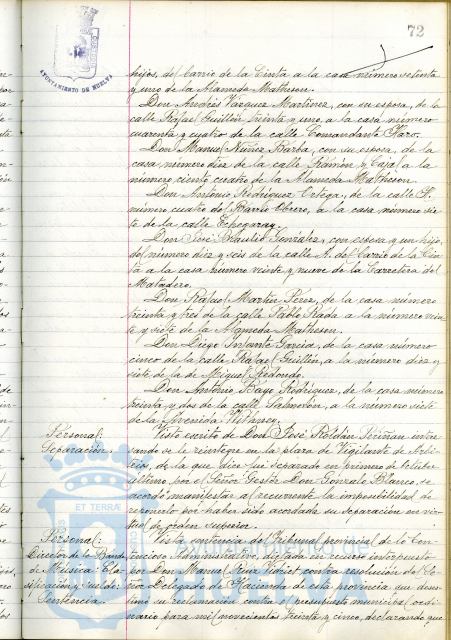 72
AYUNTAMIENTO DE HUELVA
hijos, del barrio de la Cinta a la casa número setenta
y uno de la Alameda Matheson.
Don Andrés Vázquez Martínez, con su esposa, de la
calle Rafael Guillén treinta y uno, a la casa número
cuarenta y cuatro de la calle Comandante Haro.
Don Manuel Núñez Barba, con su esposa, de la
casa número diez de la calle Ramón y Cajal a la
número ciento cuatro de la Alameda Matheson.
Don Antonio Rodríguez Ortega, de la calle
número cuatro del Barrio Obrero, a la casa número sie-
te de la calle Echegaray.
Don José González, con esposa y un hijo,
del número diez y seis de la calle A. del barrio de la Cin-
ta a la casa número veinte y nueve de la Carretera del
Matadero.
Don Rafael Martín Pérez, de la casa número
treinta y tres de la calle Pablo Rada a la número vein-
te y siete de la Alameda Matheson.
Don Diego Infante García, de la casa número
cinco de la calle Rafael Guillén, a la número diez y
siete de la de Miguel Redondo.
Don Antonio Bayo Rodríguez, de la casa número
treinta y dos de la calle Salmerón, a la número siete
de la Avenida
Personal:
Separación.
Visto escrito de Don José Roldán intere-
sando se le reintegre en la plaza de Vigilante de Arbi-
trios, de la que dice fué separado en primero de Octubre
último por el Señor Gestor Don Gonzalo Blanco, se
acordó manifestar al recurrente la imposibilidad de
reponerlo por haber sido acordada su separación en vir-
tud de orden superior.
Personal:
Director de la Banda
de Música: Cla-
sificación y sueldo:
Sentencia.
Vista sentencia del Tribunal provincial de lo Con-
tencioso Administrativo, dictada en recurso interpuesto
por Don Manuel Ruiz contra resolución del Se-
ñor Delegado de Hacienda de esta provincia que deses-
timó su reclamación contra el presupuesto municipal ordi-
nario para mil novecientos treinta y cinco, declarando que
ET TERRÆ